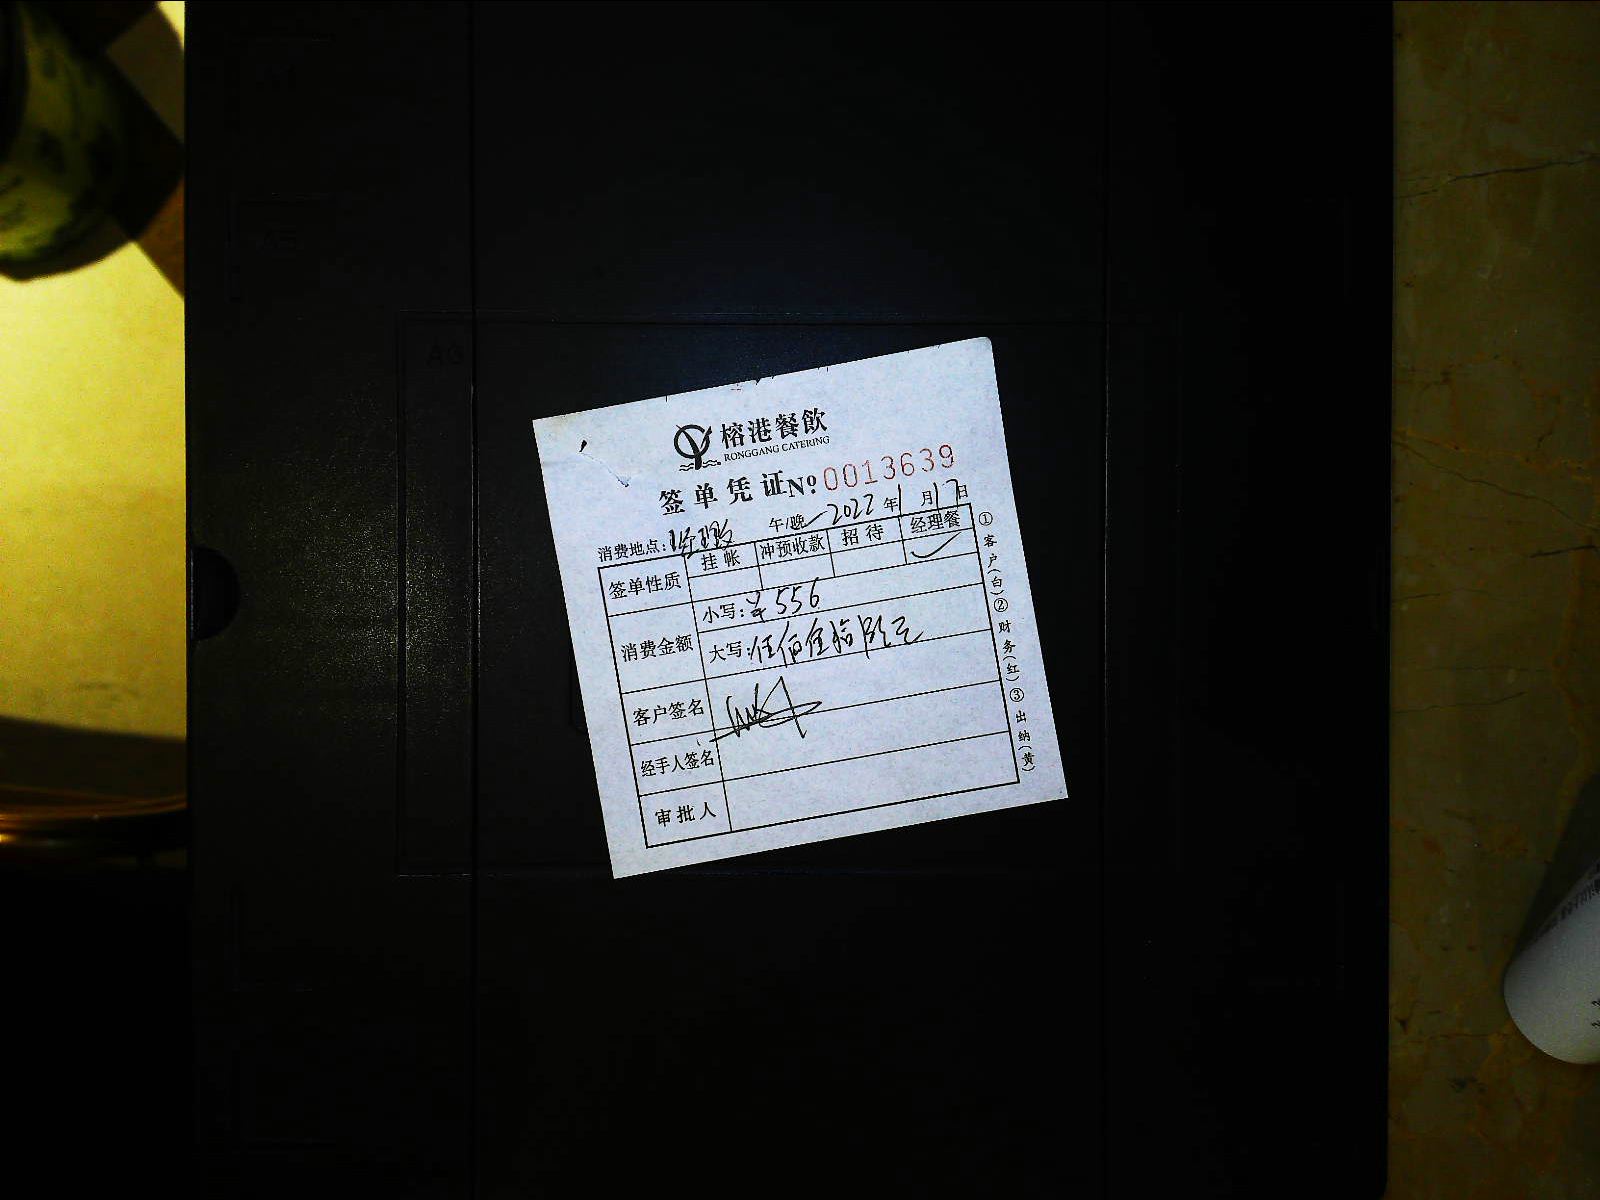 榕港餐飲
RONGGANG CATERING
签单凭证 Nº 0013639
消费地点: 午/晚 2022年1月17日
签单性质 挂帐 冲预收款 招待 经理餐
✓
消费金额 小写:¥556
大写:伍佰伍拾陆元
客户签名
经手人签名
审批人
①客户(白)②财务(红)③出纳(黄)
A3
A5